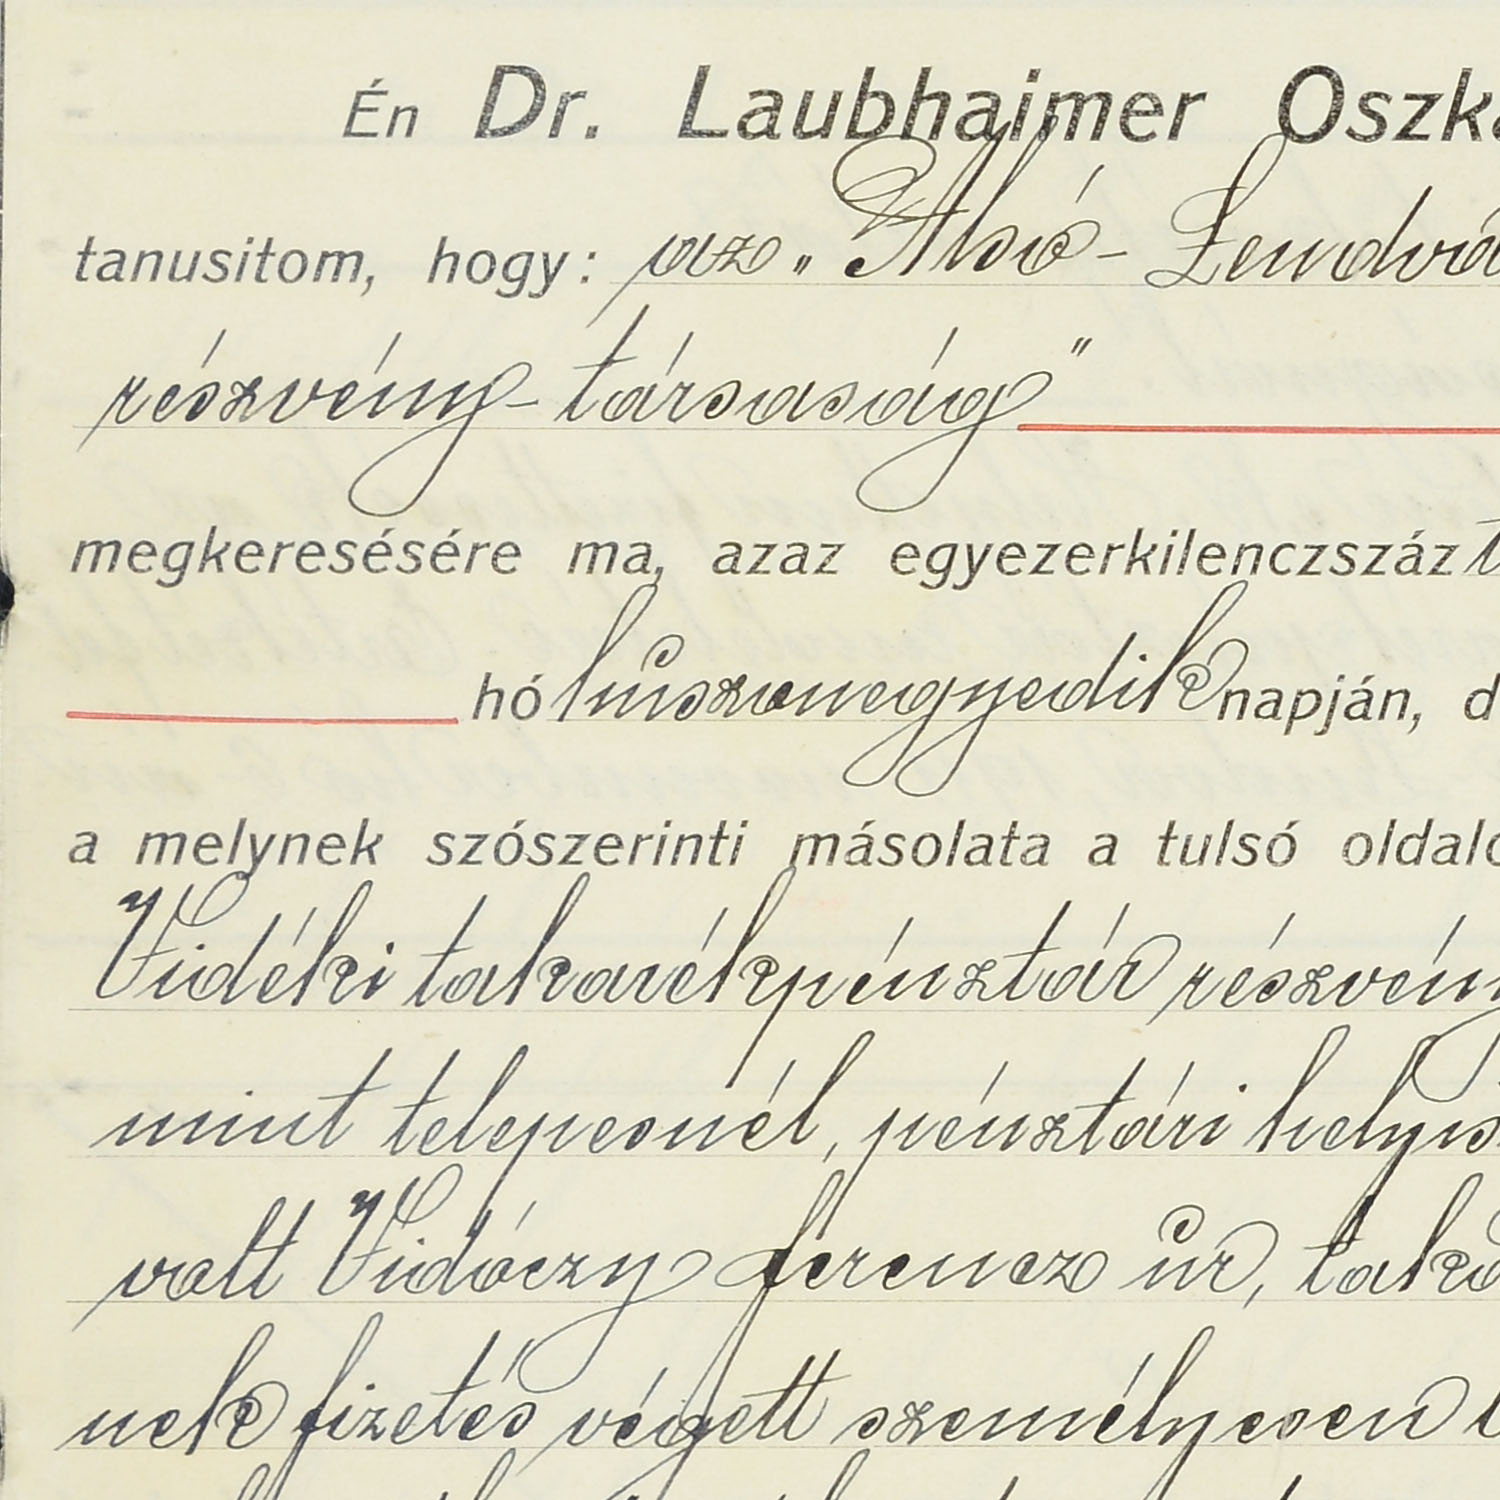 Én Dr. Laubhaimer Oszká
tanusitom, hogy: az „Alsó-Lendvá
részvény-társaság"
megkeresésére ma, azaz egyezerkilenczszáz t
hó huszonegyedik napján, d
a melynek szószerinti másolata a tulsó oldalo
Vidéki takarékpénztár részvény
mint telepesnél, pénztári helyis
volt Vidóczy Ferencz úr, taka
nek fizetés végett személyesen